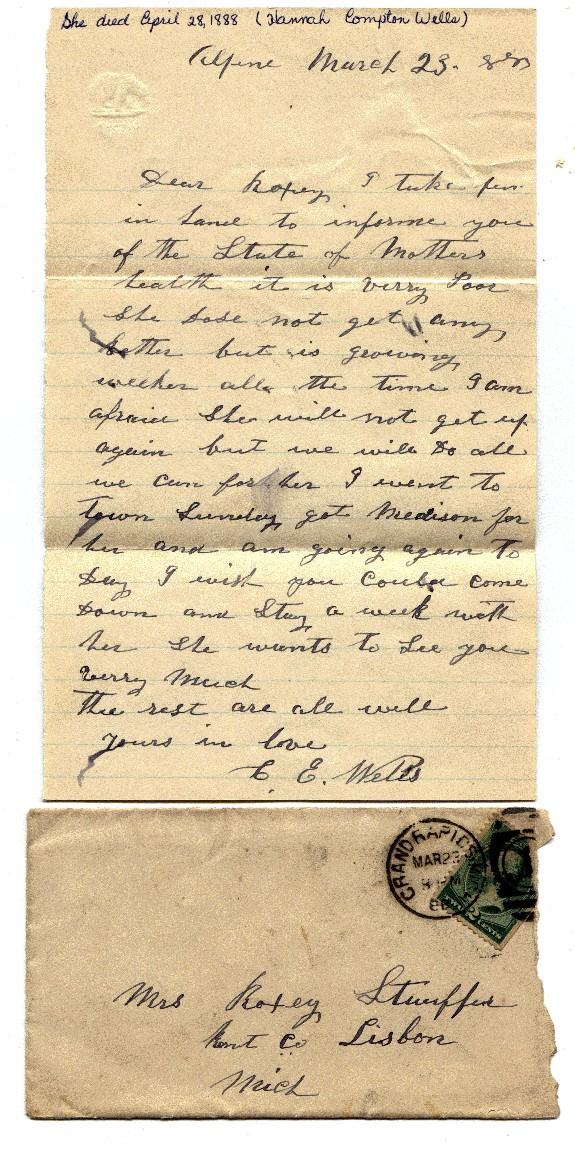 She died April 28, 1888 (Hannah Compton Wells)
Alpine March 23. 
Dear Roxey I take pen
in hand to informe you
of the State of Mothers
health it is verry Poor
She dose not get any
better but is growing
weeker all the time I am
afraid She will not get up
again but we will Do all
we can for her I went to
town Sunday got Medison for
her and am going again to
Day I wish you Could come
Down and Stay a week with
her She wants to See you
verry Much
The rest are all well
yours in love
C. E. Wells
GRAND RAPIDS
MAR 23
TWO 2 CENTS
Mrs Roxey Stauffer
Kent Co Lisbon
Mich